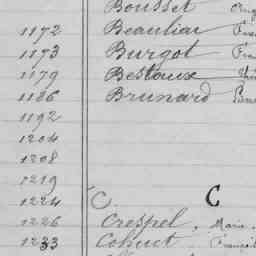 Bousset
1172 Beauliac
1173 Burgot
1179 Bestoux
1186 Brunard
1192
1204
1208
1219
1224 C. C
1226 Crespel, Marie
1233 Cohuet François